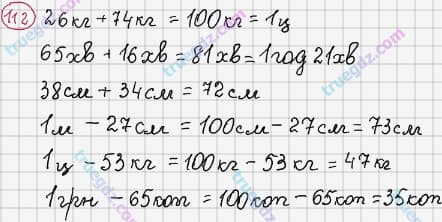 112) 26кг + 74кг = 100кг = 1ц
65хв + 16хв = 81хв = 1год 21хв
38см + 34см = 72см
1м - 27см = 100см - 27см = 73см
1ц - 53кг = 100кг - 53кг = 47кг
1грн - 65коп = 100коп - 65коп = 35коп
truegdz.com